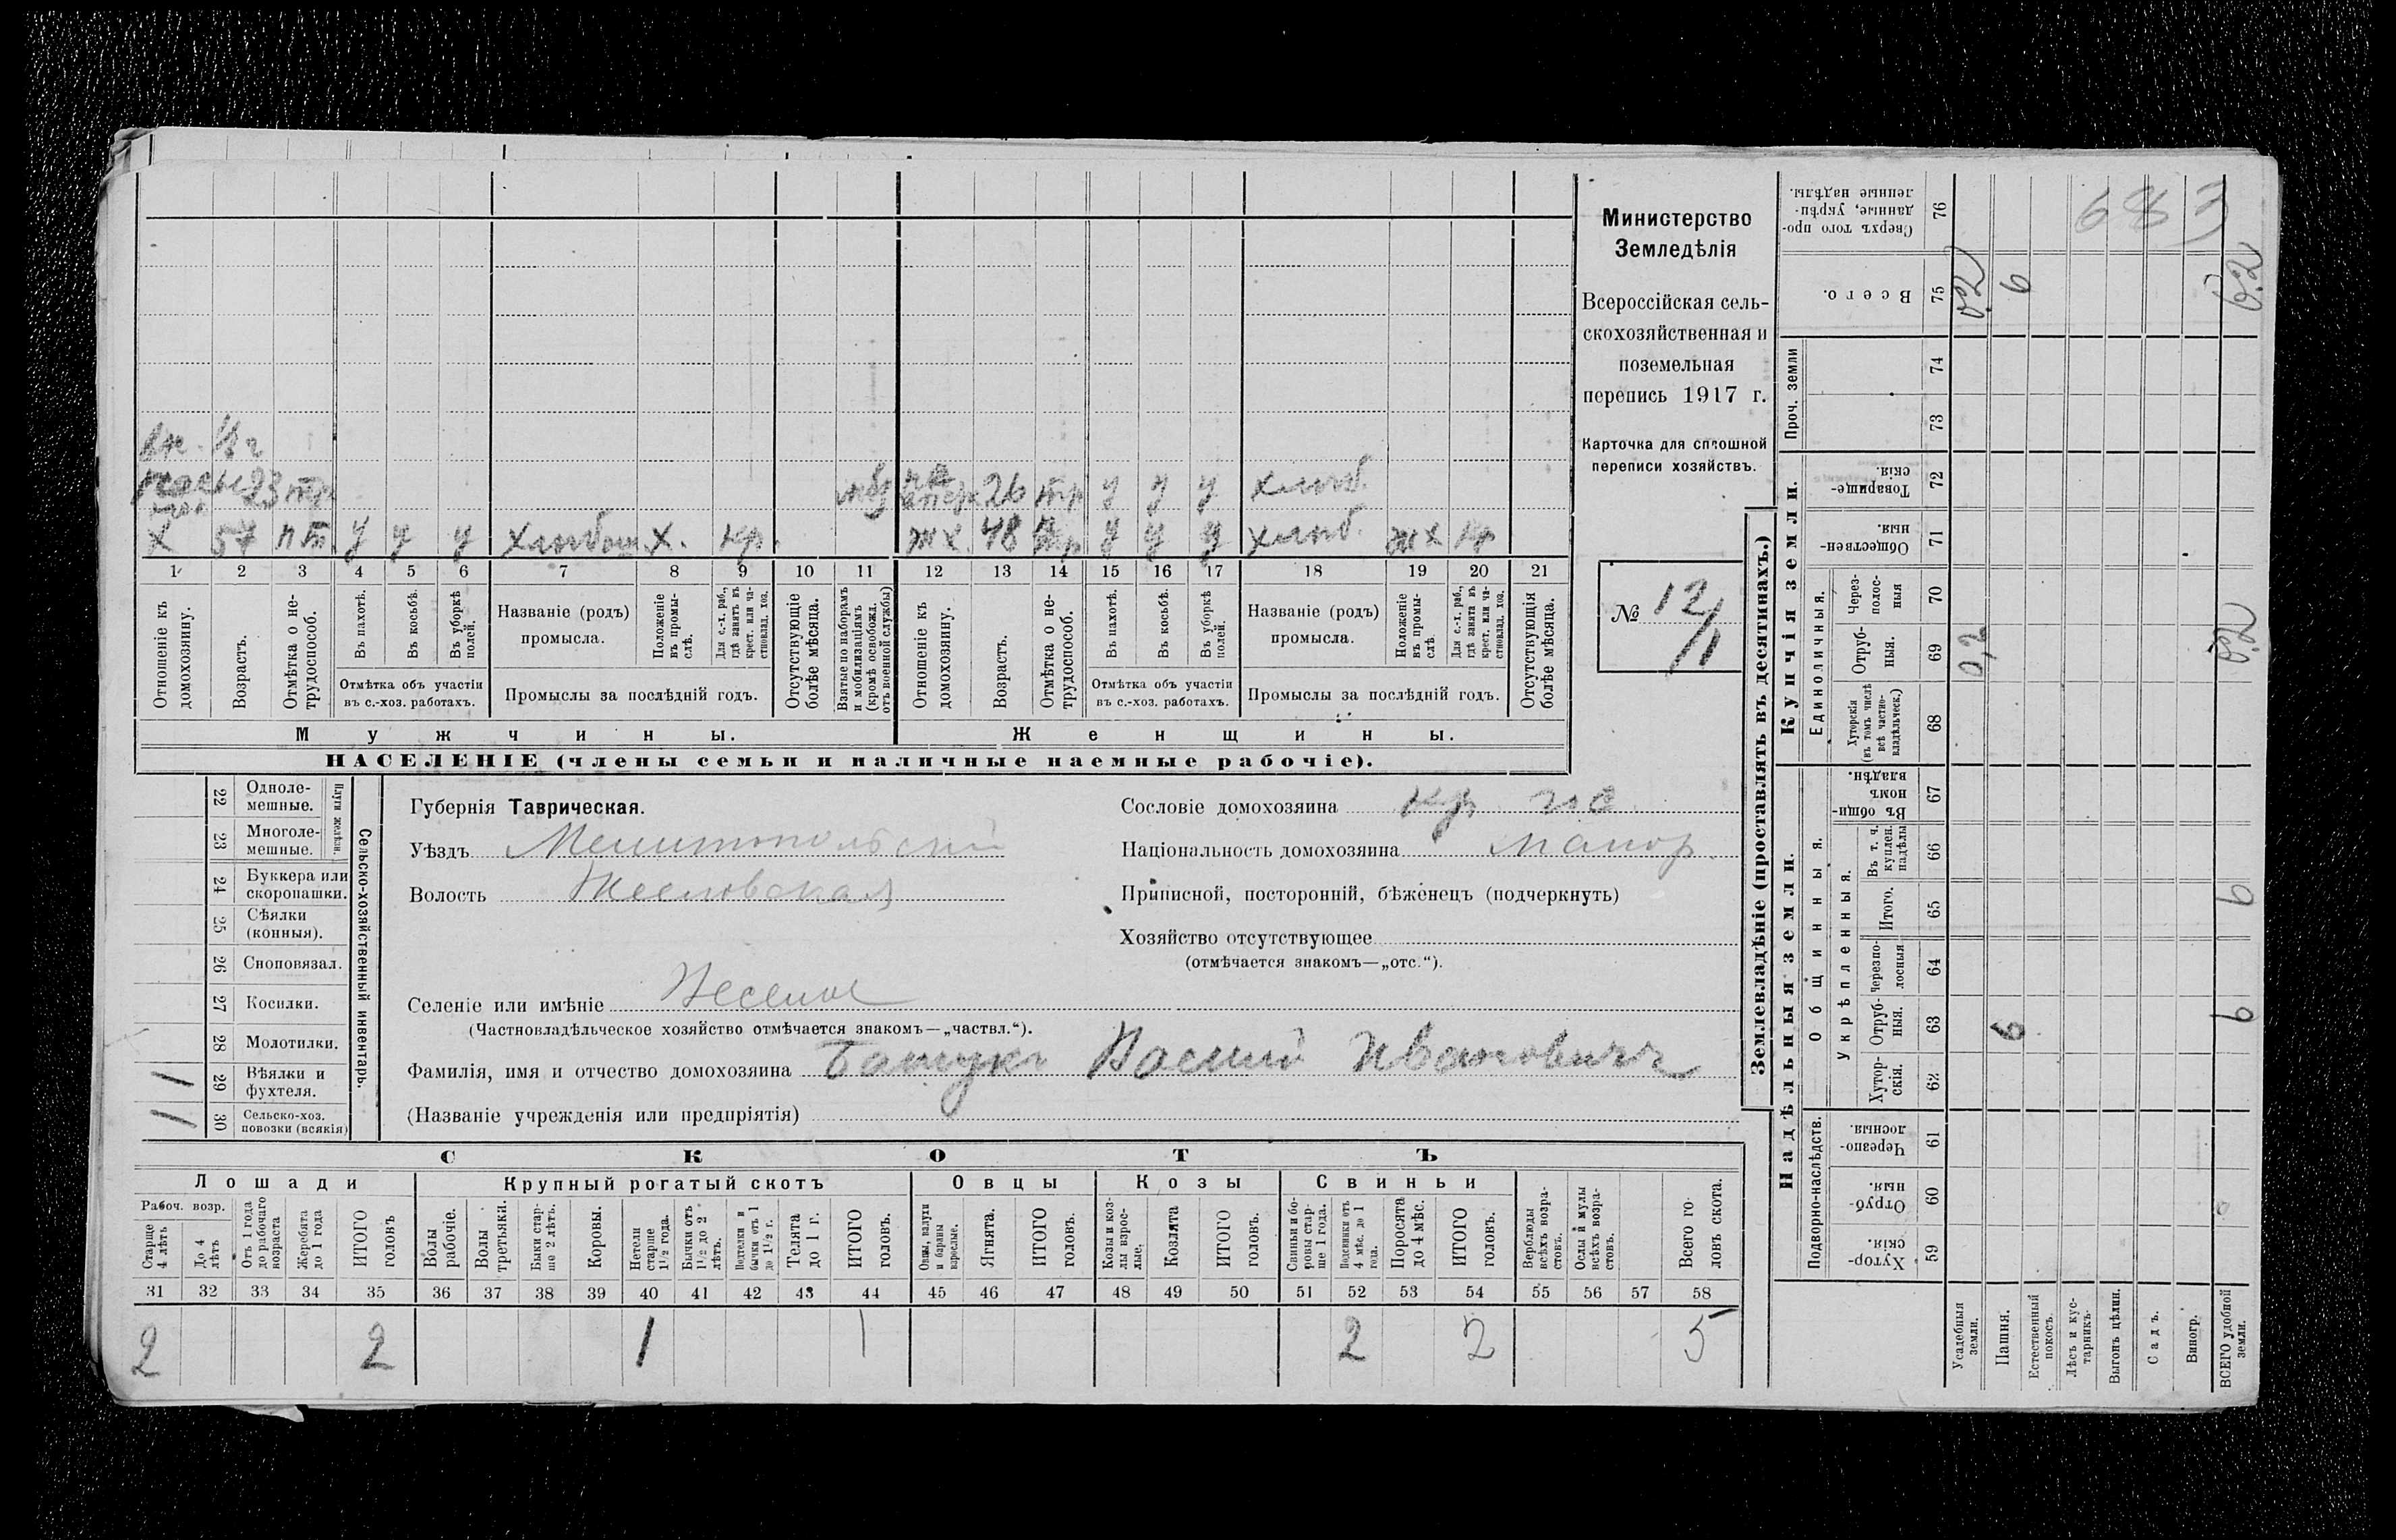 Министерство
Земледѣлія
Всероссійская сель-
скохозяйственная и
поземельная
перепись 1917 г.
Карточка для сплошной
переписи хозяйствъ.
№ 12/1
23
26 тр у у у хлѣб.
Х 57 пт. у у у Х. кр. ЖХ 48 у у у хлѣб. ЖХ кр
1 2 3 4 5 6 7 8 9 10 11 12 13 14 15 16 17 18 19 20 21
Отношеніе къ домохозяину.
Возрастъ.
Отмѣтка о не-трудоспособ.
Въ пахотѣ.
Въ косьбѣ.
Въ уборкѣ полей.
Отмѣтка объ участіи
въ с.-хоз. работахъ.
Названіе (родъ)
промысла.
Положеніе въ промы-слѣ.
Для с.-х. раб., гдѣ занятъ въ крест. или ча-стновлад. хоз.
Промыслы за послѣдній годъ.
Отсутствующіе болѣе мѣсяца.
Взятые по наборамъ и мобилизаціямъ (кромѣ освобожд. отъ военной службы)
Отношеніе къ домохозяину.
Возрастъ.
Отмѣтка о не-трудоспособ.
Въ пахотѣ.
Въ косьбѣ.
Въ уборкѣ полей.
Отмѣтка объ участіи
въ с.-хоз. работахъ.
Названіе (родъ)
промысла.
Положеніе въ промы-слѣ.
Для с.-х. раб., гдѣ занята въ крест. или ча-стновлад. хоз.
Промыслы за послѣдній годъ.
Отсутствующія болѣе мѣсяца.
Мужчины. Женщины.
НАСЕЛЕНІЕ (члены семьи и наличные наемные рабочіе).
Сельско-хозяйственный инвентарь.
Плуги желѣзн.
22 Одноле-мешные.
23 Многоле-мешные.
24 Буккера или скоропашки.
25 Сѣялки (конныя).
26 Сноповязал.
27 Косилки.
28 Молотилки.
1 29 Вѣялки и фухтеля.
1 30 Сельско-хоз. повозки (всякія)
Губернія Таврическая.
Уѣздъ Мелитопольскій
Волость Веселовская
Селеніе или имѣніе Веселое
(Частновладѣльческое хозяйство отмѣчается знакомъ—„частвл.“).
Фамилія, имя и отчество домохозяина Василій Ивановичъ
(Названіе учрежденія или предпріятія)
Сословіе домохозяина кр
Національность домохозяина малор.
Приписной, посторонній, бѣженецъ (подчеркнуть)
Хозяйство отсутствующее
(отмѣчается знакомъ—„отс.“).
СКОТЪ
Лошади Крупный рогатый скотъ Овцы Козы Свиньи
Рабоч. возр.
Старше 4 лѣтъ
До 4 лѣтъ
Отъ 1 года до рабочаго возраста
Жеребята до 1 года
ИТОГО головъ
Волы рабочіе.
Волы третьяки.
Быки стар-ше 2 лѣтъ.
Коровы.
Нетели старше 1½ года.
Бычки отъ 1½ до 2 лѣтъ.
Подтелки и бычки отъ 1 до 1½ г.
Телята до 1 г.
ИТОГО головъ.
Овцы, валухи и бараны взрослые.
Ягнята.
ИТОГО головъ.
Козы и коз-лы взрос-лые.
Козлята
ИТОГО головъ.
Свиньи и бо-ровы стар-ше 1 года.
Подсвинки отъ 4 мѣс. до 1 года.
Поросята до 4 мѣс.
ИТОГО головъ.
Верблюды всѣхъ возра-стовъ.
Ослы и мулы всѣхъ возра-стовъ.
Всего го-ловъ скота.
31 32 33 34 35 36 37 38 39 40 41 42 43 44 45 46 47 48 49 50 51 52 53 54 55 56 57 58
2 2 1 1 2 2 5
Землевладѣніе (проставлять въ десятинахъ.)
Надѣльныя земли. Купчія земли. Проч. земли
Подворно-наслѣдств.
Общинныя.
Укрѣпленныя.
Единоличныя.
59 Хутор-скія.
60 Отруб-ныя.
61 Черезпо-лосныя.
62 Хутор-скія.
63 Отруб-ныя.
64 Черезпо-лосныя
65 Итого.
66 Въ т. ч. куплен. надѣлы
67 Въ общи-номъ владѣн.
68 Хуторскія (въ томъ числѣ всѣ частно-владѣльческ.)
69 Отруб-ныя.
70 Через-полос-ныя
71 Обществен-ныя.
72 Товарище-скія.
73
74
75 Всего.
76 Сверхъ того про-данные, укрѣп-ленные надѣлы.
Усадебныя земли. 0,2 0,2
Пашня. 6 6
Естественный покосъ.
Лѣсъ и кус-тарникъ.
Выгонъ цѣлин.
Садъ.
Виногр.
ВСЕГО удобной земли. 6 6 0,2 6.2
683